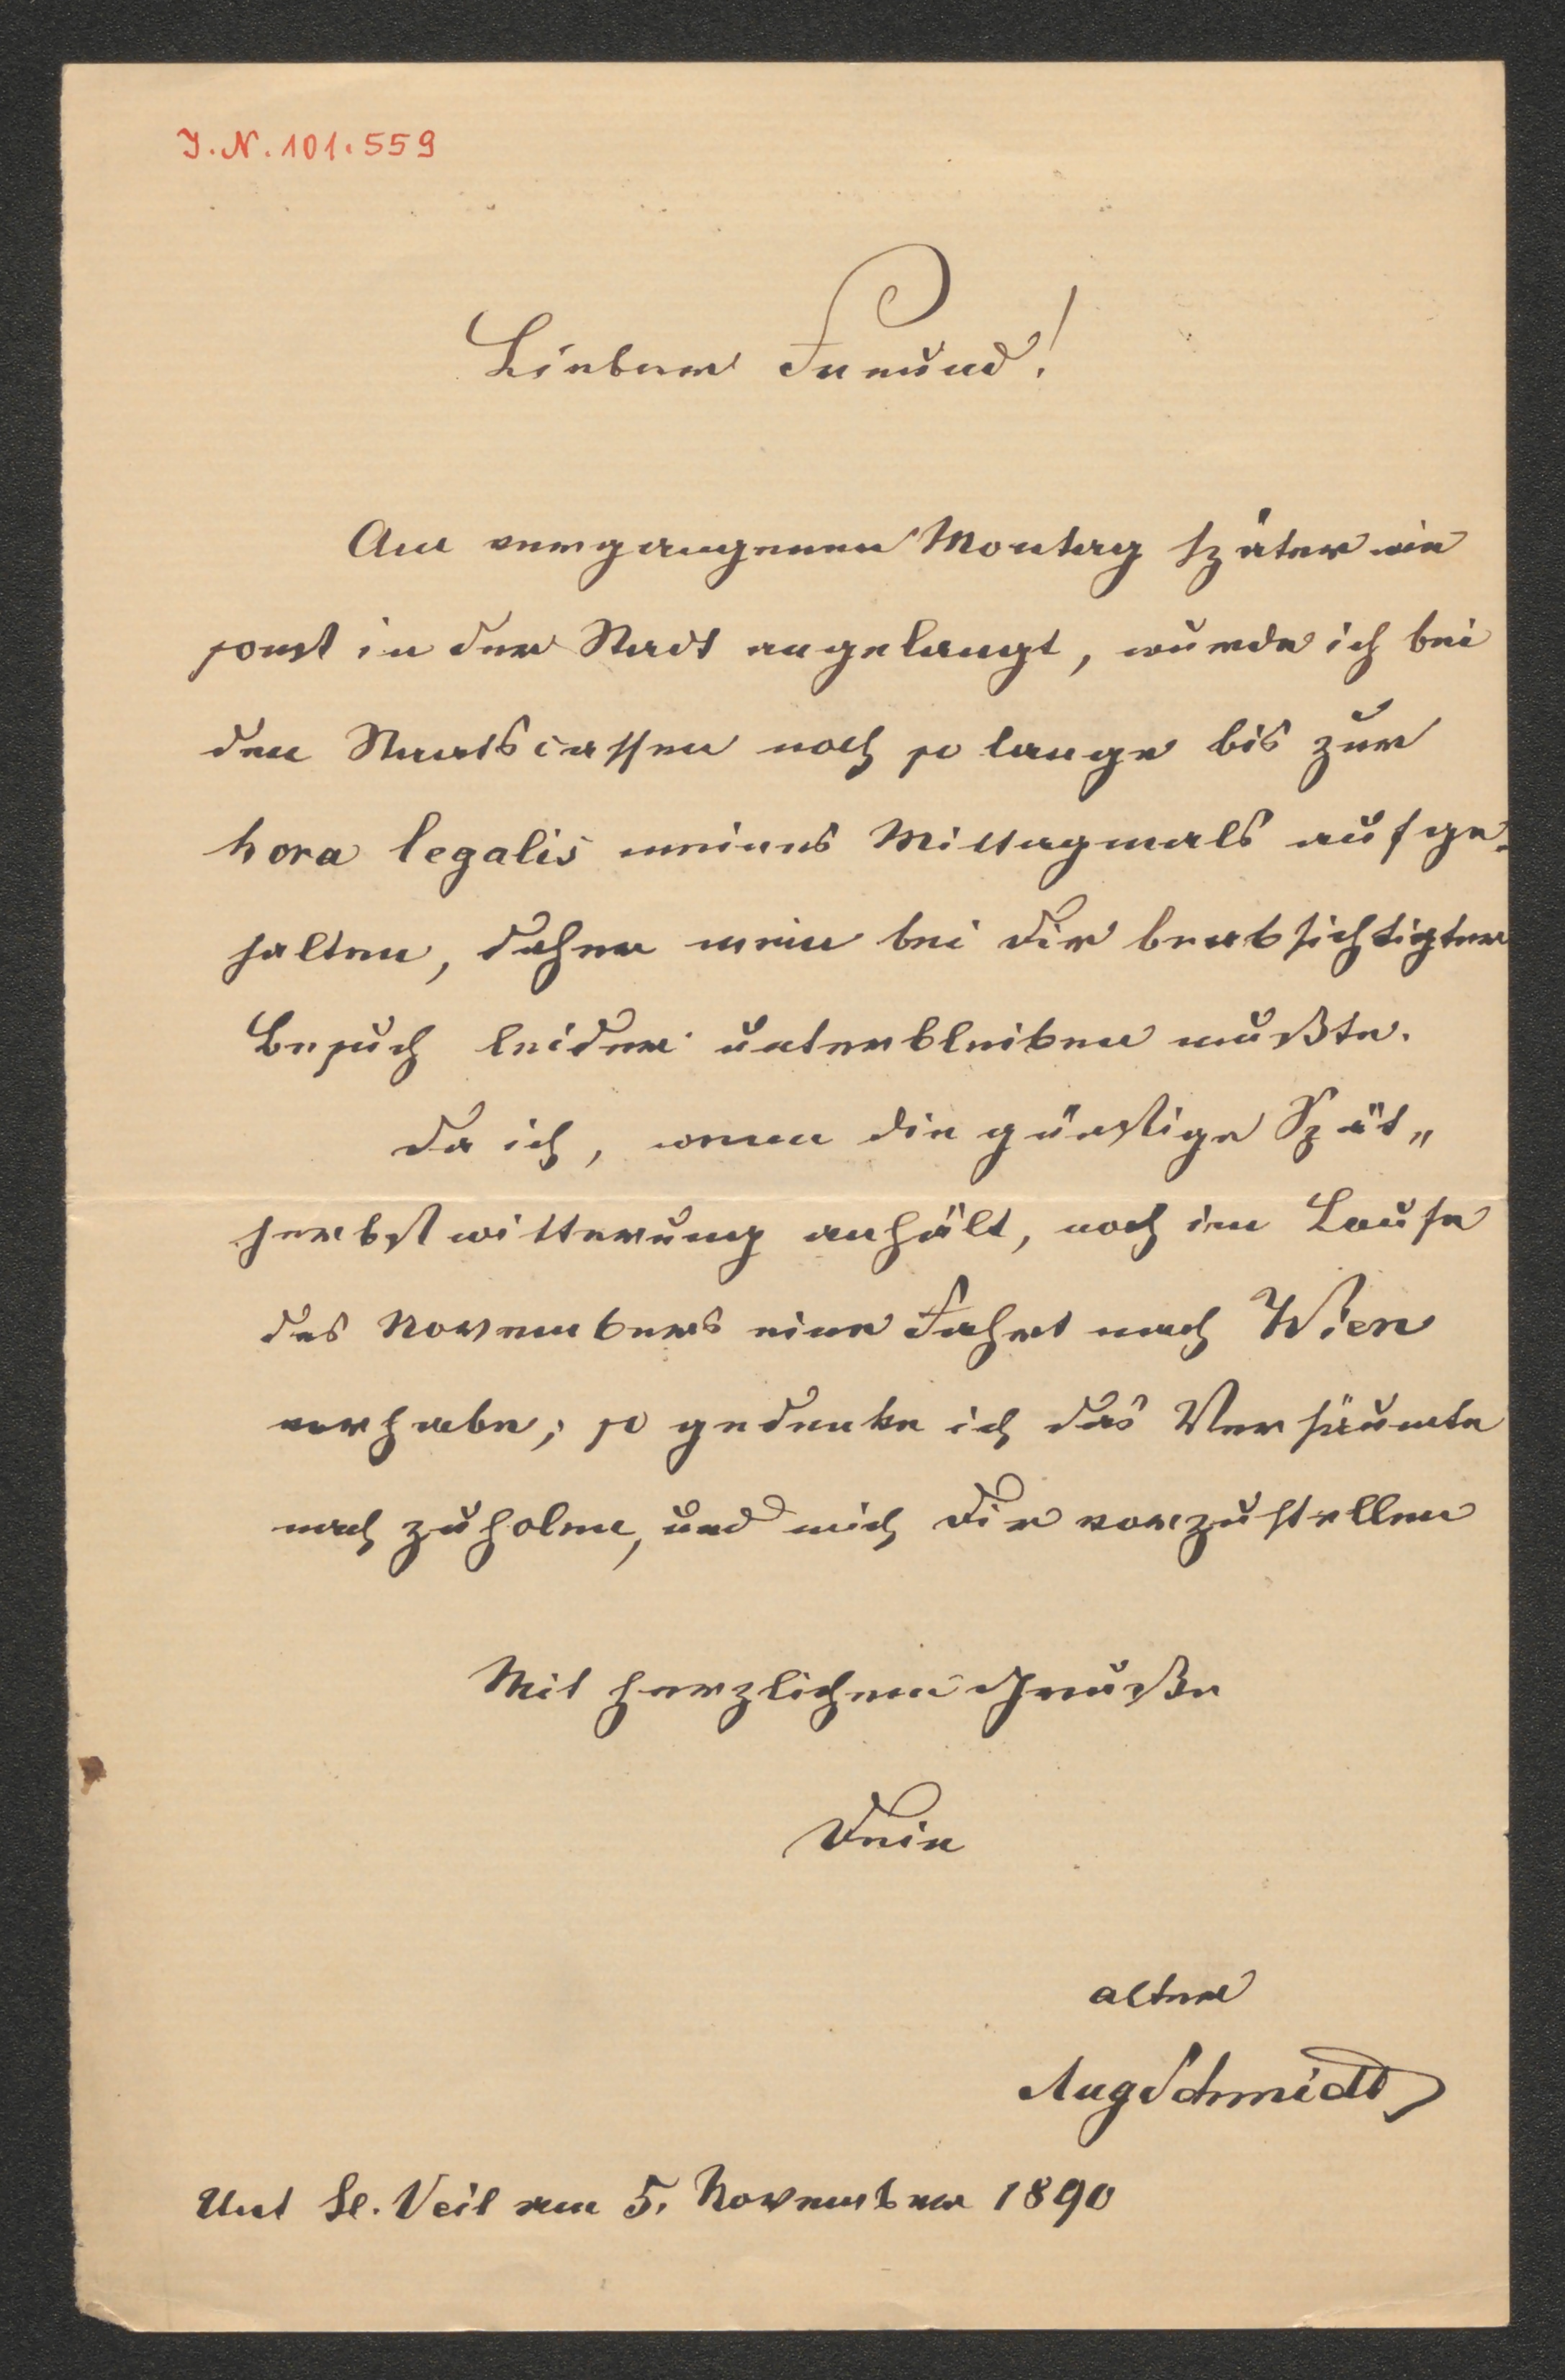 J. N. 101.559
Lieber Freund!
Am vergangenen Montag später wie
sonst in der Stadt angelangt, wurde ich bei
den Staatscassen noch so lange bis zur
hora legalis meines Mittagmals aufge-
halten, daher mein bei Dir beabsichtigter
Besuch leider unterbleiben mußte.
Da ich, wenn die günstige Spät„
herbstwitterung anhält, noch im Laufe
des Novembers eine Fahrt nach Wien
vorhabe; so gedenke ich das Versäumte
nach zuholen, und mich Dir vorzustellen
Mit herzlichem Gruße
Dein
alter
AugSchmidt
Unt St. Veit am 5. November 1890